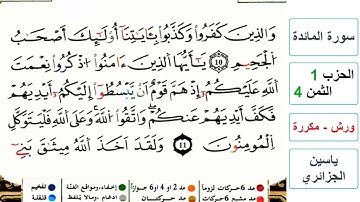 وَالَّذِينَ كَفَرُوا وَكَذَّبُوا بِـَٔايَٰتِنَا أُوْلَٰٓئِكَ أَصْحَٰبُ
الْجَحِيمِ 10 يَٰٓأَيُّهَا الَّذِينَ ءَامَنُوا اذْكُرُوا نِعْمَتَ
اللَّهِ عَلَيْكُمْ إِذْ هَمَّ قَوْمٌ أَنْ يَبْسُطُوا إِلَيْكُمْ أَيْدِيَهُمْ
فَكَفَّ أَيْدِيَهُمْ عَنكُمْ وَاتَّقُوا اللَّهَ وَعَلَى اللَّهِ فَلْيَتَوَكَّلِ
الْمُومِنُونَ 11 وَلَقَدْ أَخَذَ اللَّهُ مِيثَٰقَ بَنِي
سورة المائدة
الحزب 1
الثمن 4
ورش - مكررة
ياسين
الجزائري
مد 6 حركات لزوماً
مد 2 أو 4 أو 6 جوازاً
إخفاء، ومواقع الغنة
تفخيم
مد حركتان
إدغام، ومالا يلفظ
قلقلة